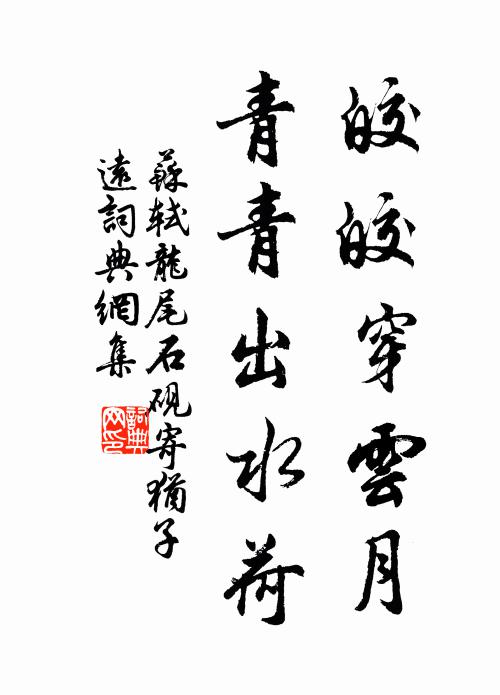 皎皎穿雲月
青青出水荷
蘇軾龍尾石硯寄猶子
遠詞典網集
詞典網印